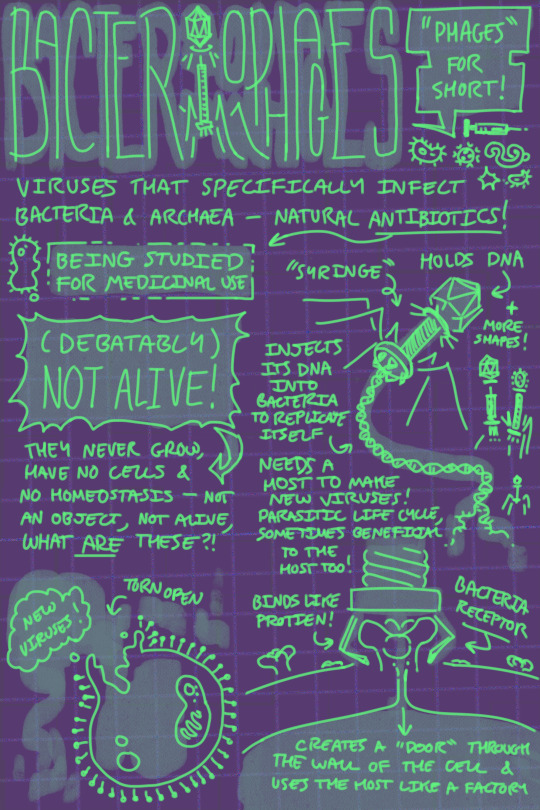 BACTERIOPHAGES
"PHAGES"
FOR
SHORT!
VIRUSES THAT SPECIFICALLY INFECT
BACTERIA & ARCHAEA – NATURAL ANTIBIOTICS!
BEING STUDIED
FOR MEDICINAL USE
(DEBATABLY)
NOT ALIVE!
THEY NEVER GROW,
HAVE NO CELLS &
NO HOMEOSTASIS – NOT
AN OBJECT, NOT ALIVE,
WHAT ARE THESE?!
"SYRINGE"
HOLDS DNA
+
MORE
SHAPES!
INJECTS
ITS DNA
INTO
BACTERIA
TO REPLICATE
ITSELF
NEEDS A
HOST TO MAKE
NEW VIRUSES!
PARASITIC LIFE CYCLE,
SOMETIMES BENEFICIAL
TO THE
HOST TOO!
NEW
VIRUSES!
TORN OPEN
BINDS LIKE
PROTIEN!
BACTERIA
RECEPTOR
CREATES A "DOOR" THROUGH
THE WALL OF THE CELL &
USES THE HOST LIKE A FACTORY